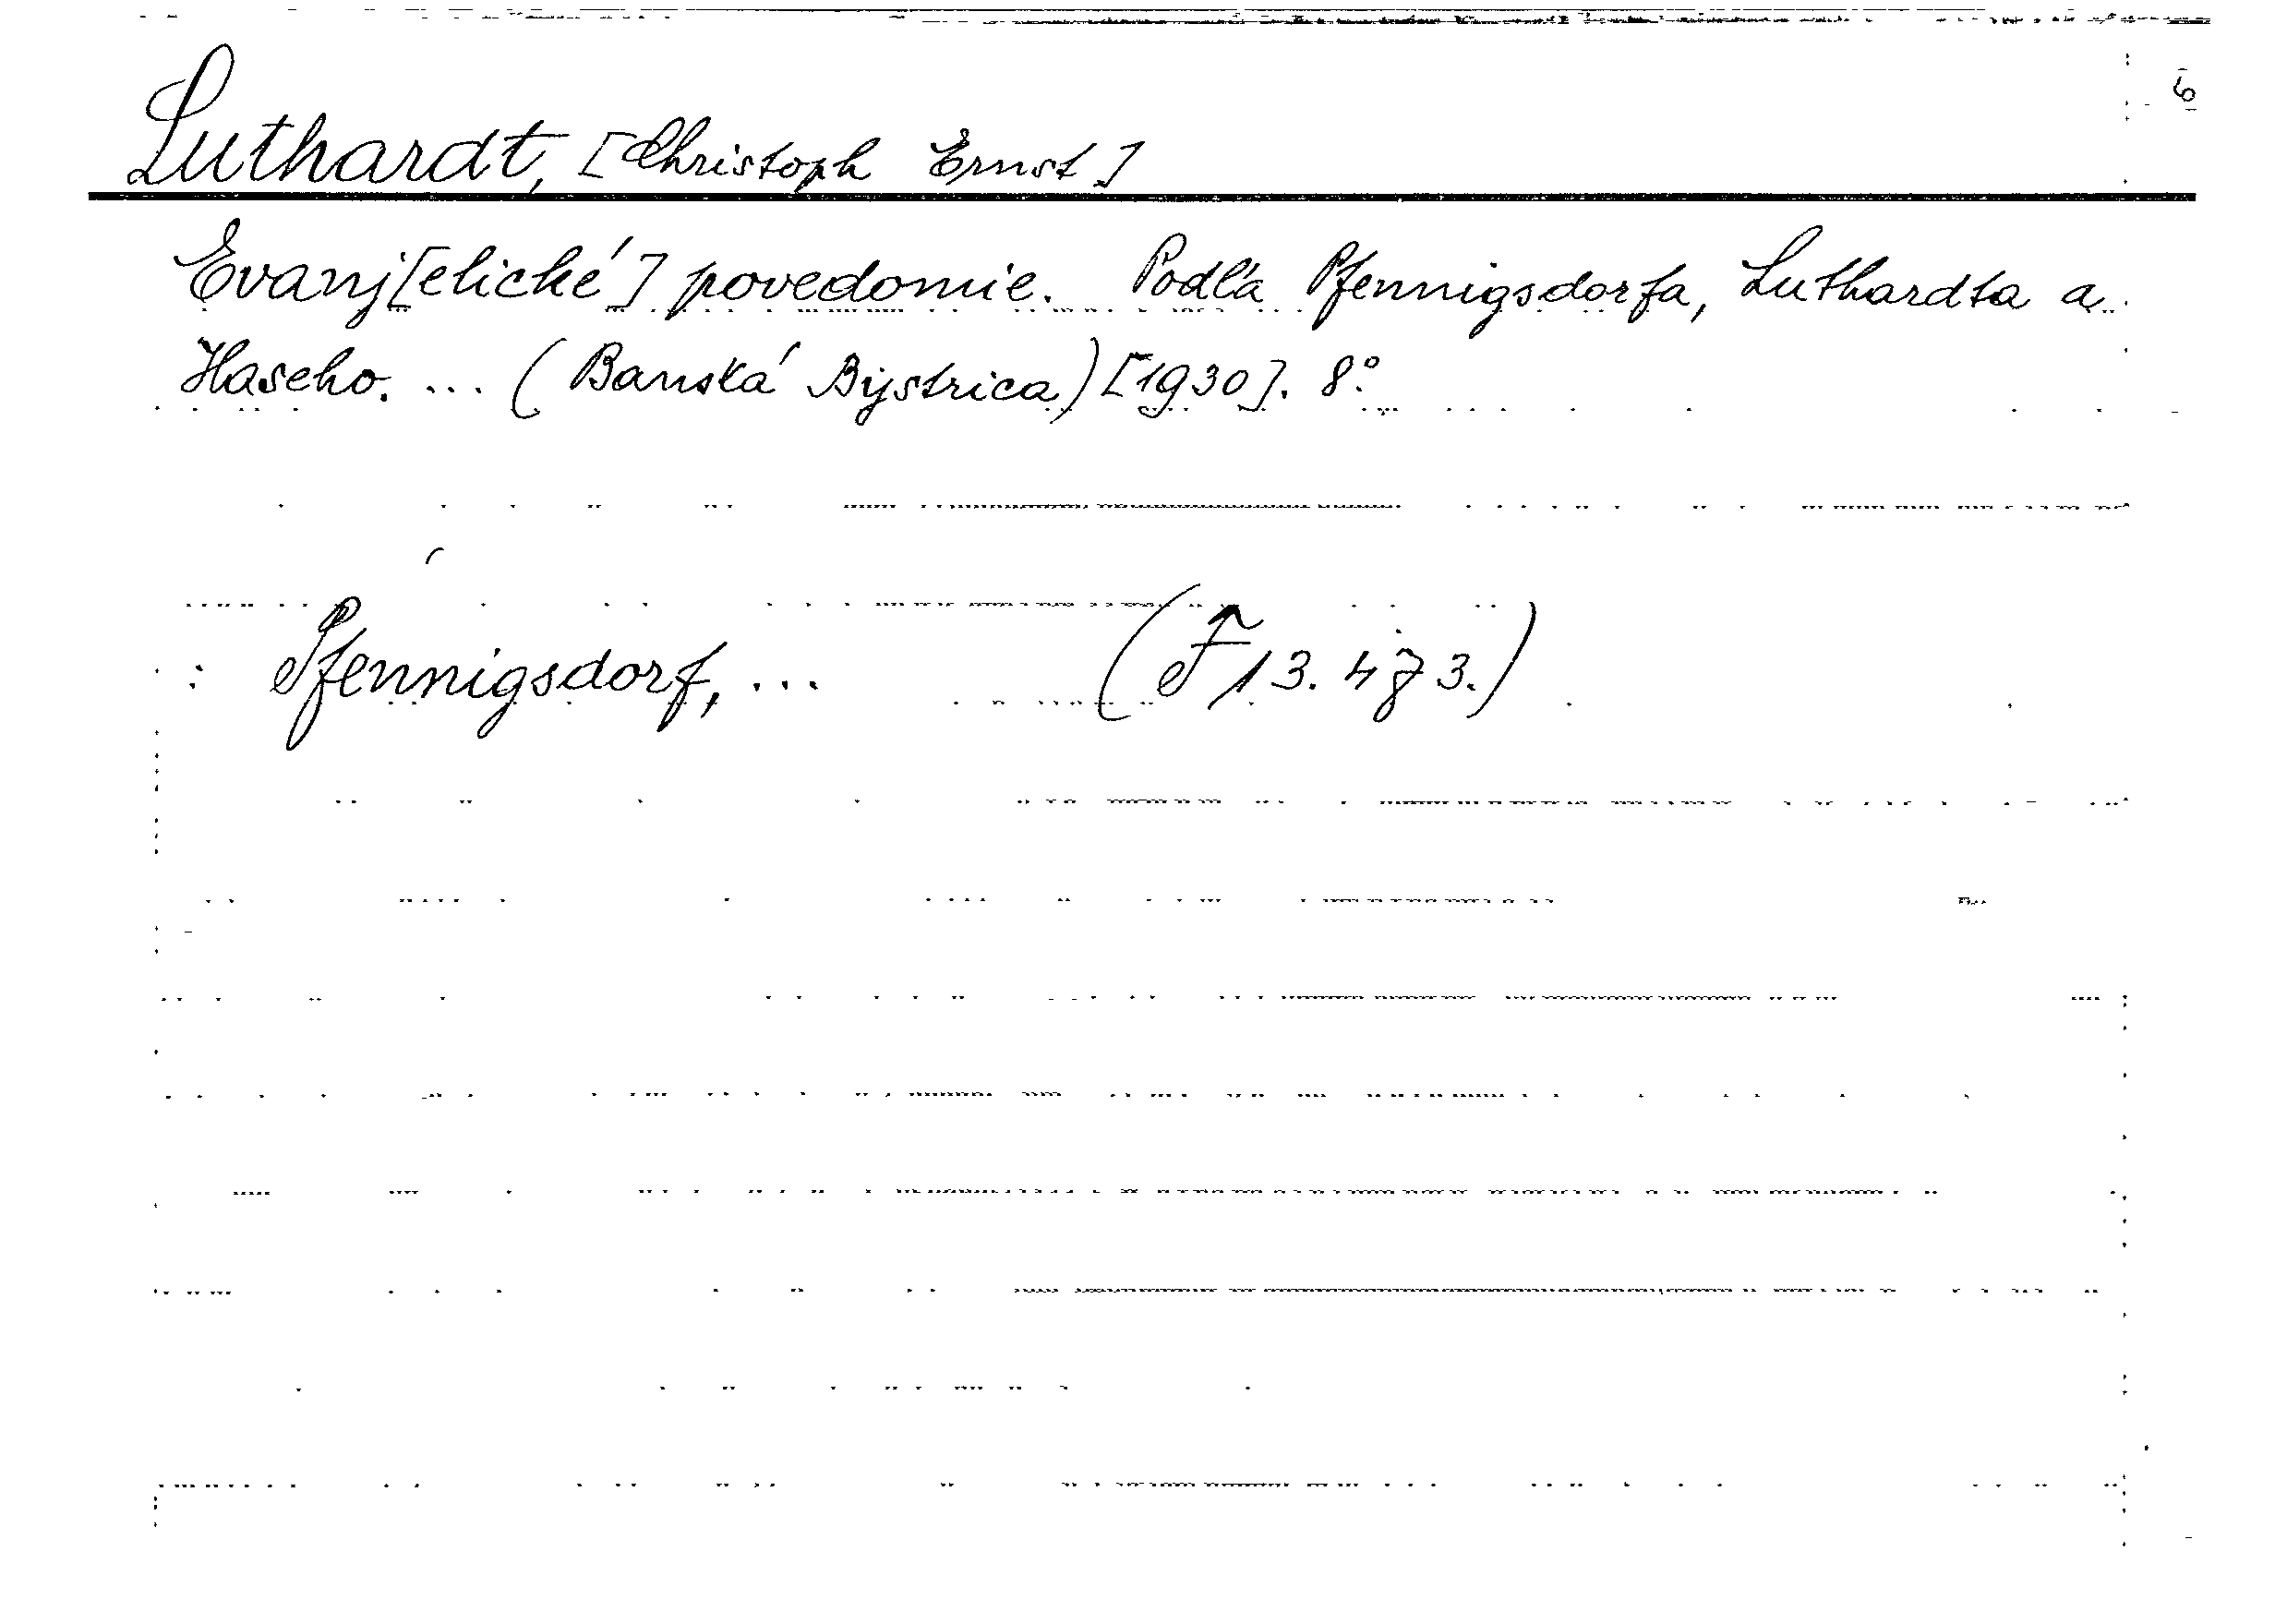 6
Luthardt, [Christoph Ernst]
Evanj[elické] povedomie. Podľa Pfennigsdorfa, Luthardta a
Haseho. ... (Banská Bystrica) [1930]. 8°.
: Pfennigsdorf, ... (F 13.473.)